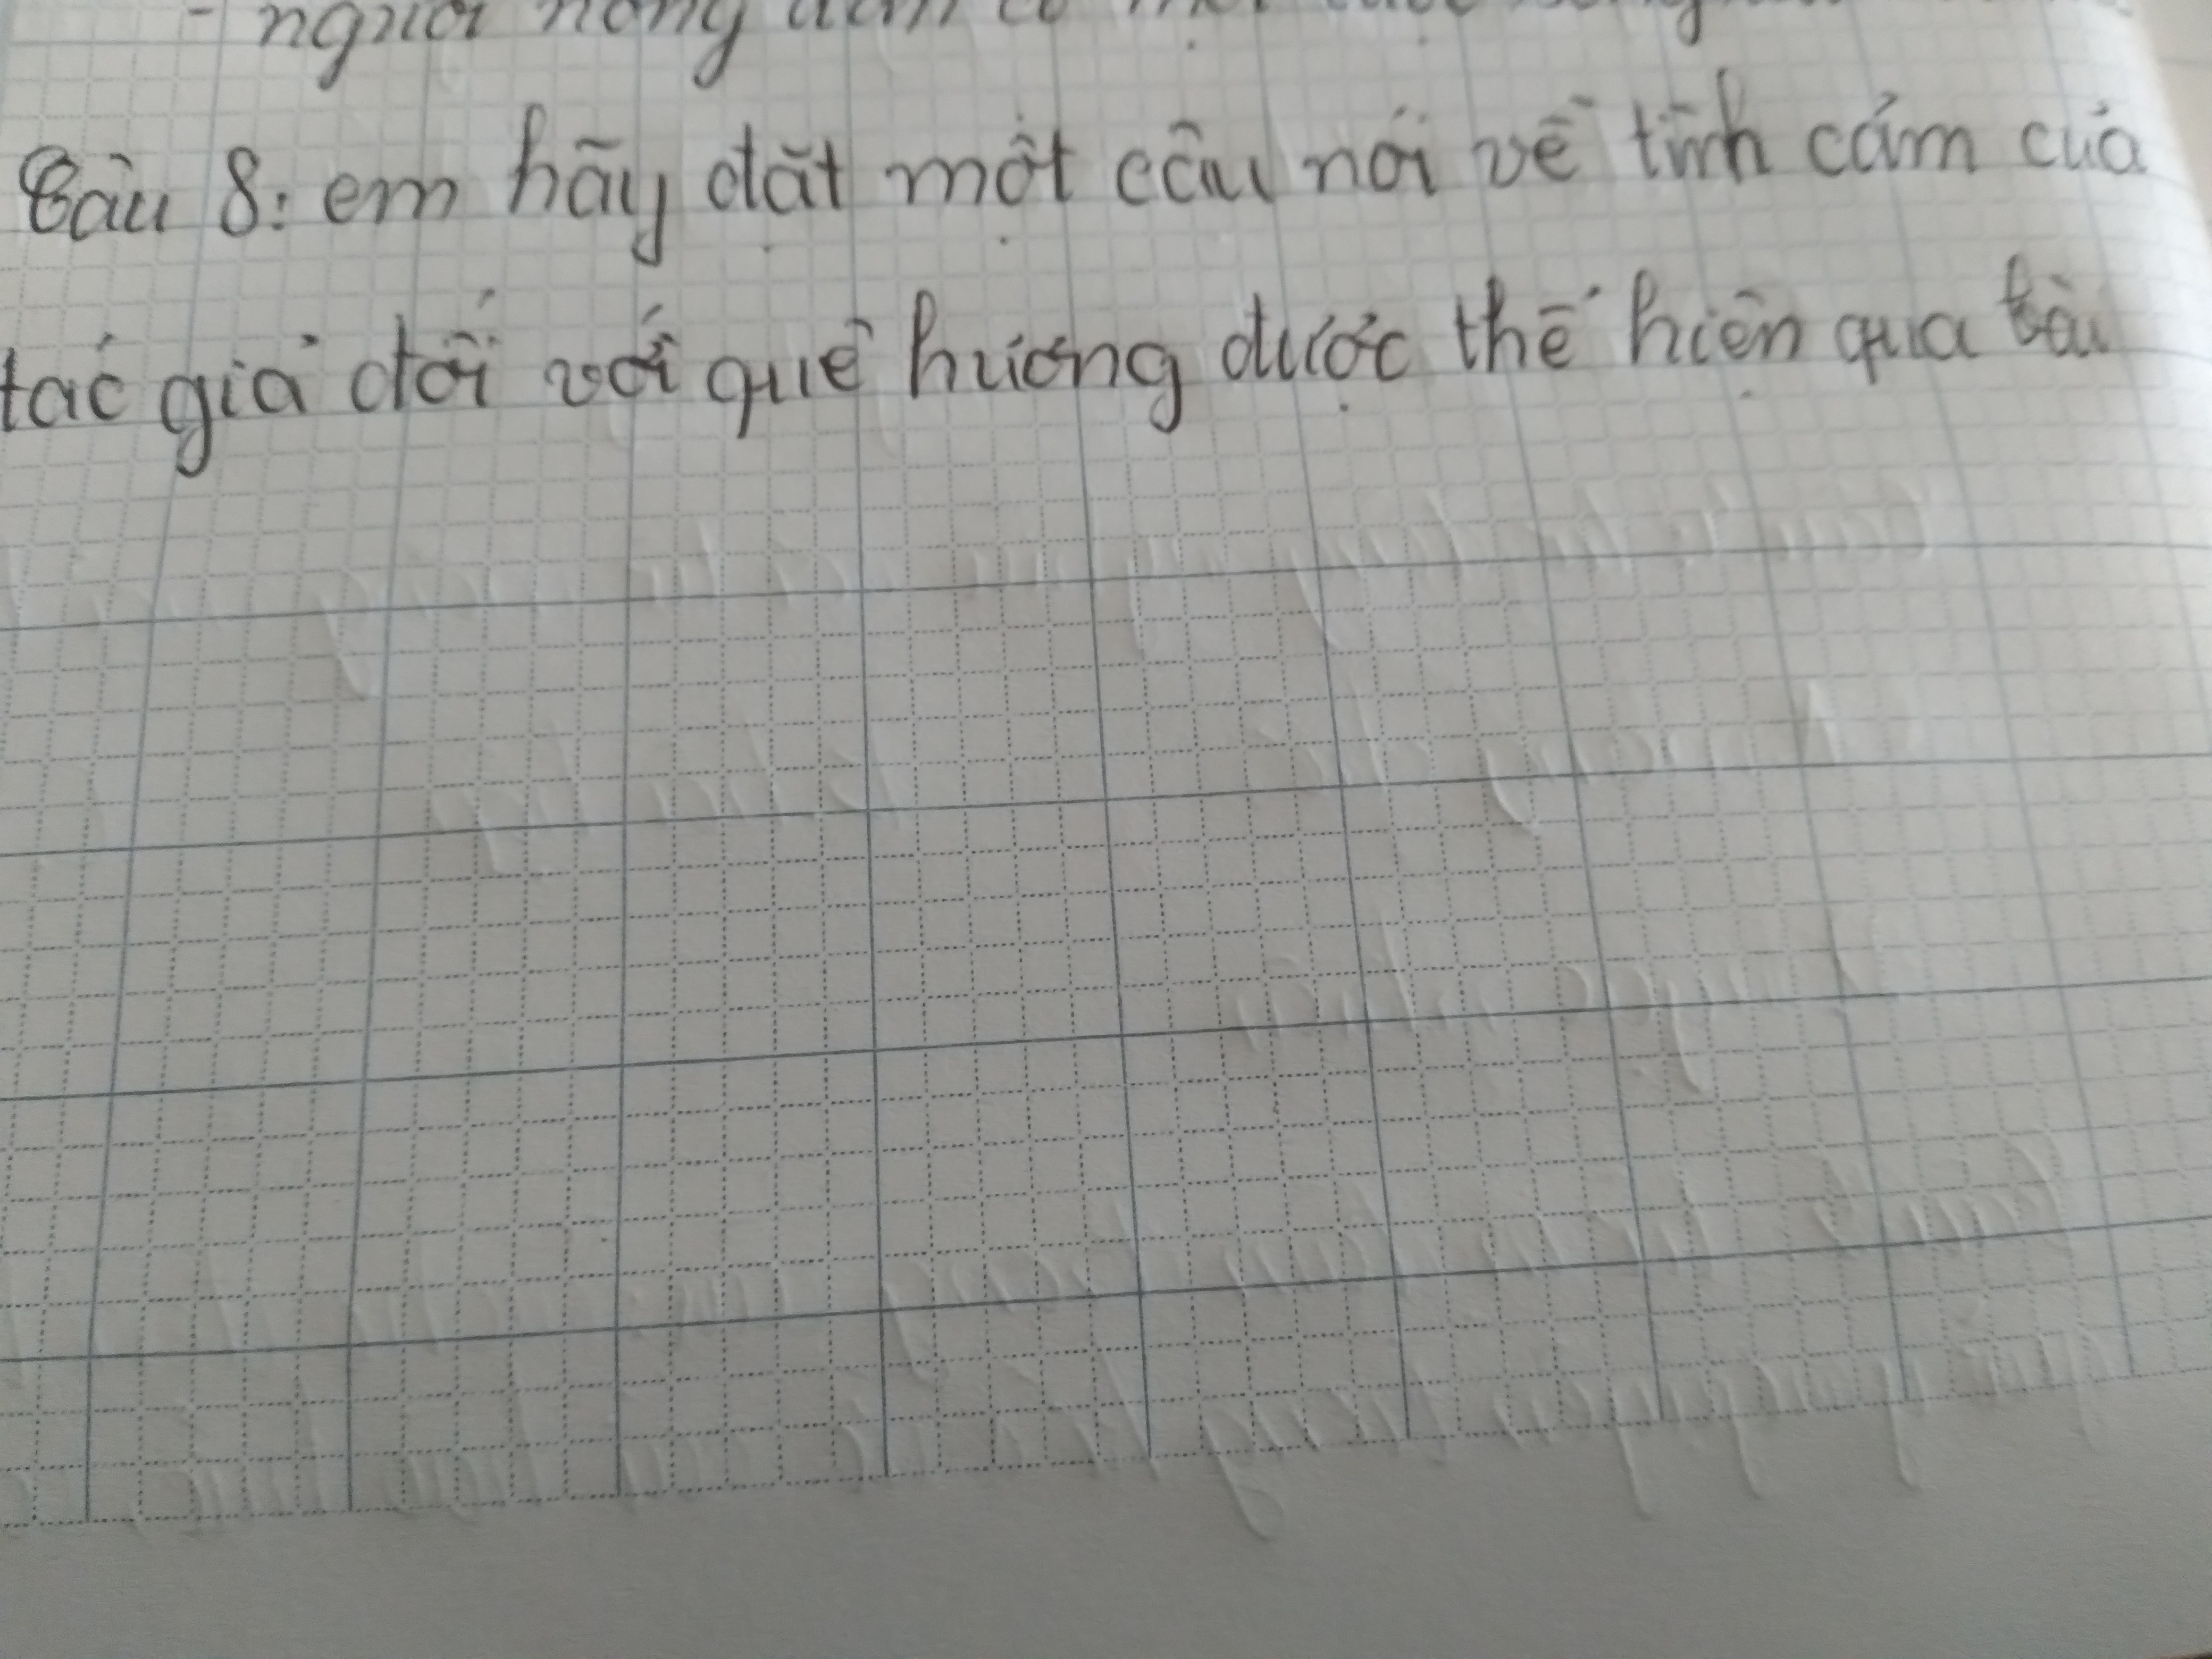 - người nông dân có một cuộc sống
Câu 8: em hãy đặt một câu nói về tình cảm của
tác giả đối với quê hương được thể hiện qua bài